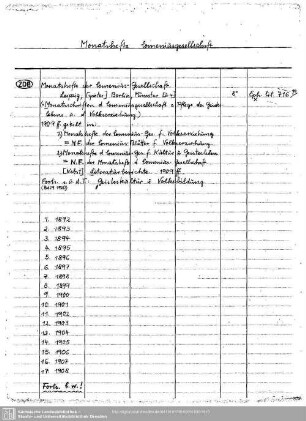 Monatshefte Comeniusgesellschaft
208
Monatshefte der Comenius-Gesellschaft
Leipzig, [später] Berlin, Münster
8°
Eph. lit. 716
(Monatsschriften d. Comeniusgesellschaft z. Pflege d.
Lebens u. d. Volkserziehung)
1909 ff. geteilt in:
1) Monatshefte der Comenius-Ges. f. Volkserziehung
= N.F. der Comenius-Blätter f. Volkserziehung.
2) Monatshefte d. Comenius-Ges. f. Kultur u. Geistesleben
= N.F. der Monatshefte d. Comenius-Gesellschaft
1909 ff
Forts. u. d. T.: Geisteskultur u. Volksbildung.
1. 1892
2. 1893
3. 1894
4. 1895
5. 1896
6. 1897
7. 1898
8. 1899
9. 1900
10. 1901
11. 1902
12. 1903
13. 1904
14. 1905
15. 1906
16. 1907
17. 1908
Forts. s. w.!
Sächsische Landesbibliothek -
Staats- und Universitätsbibliothek Dresden